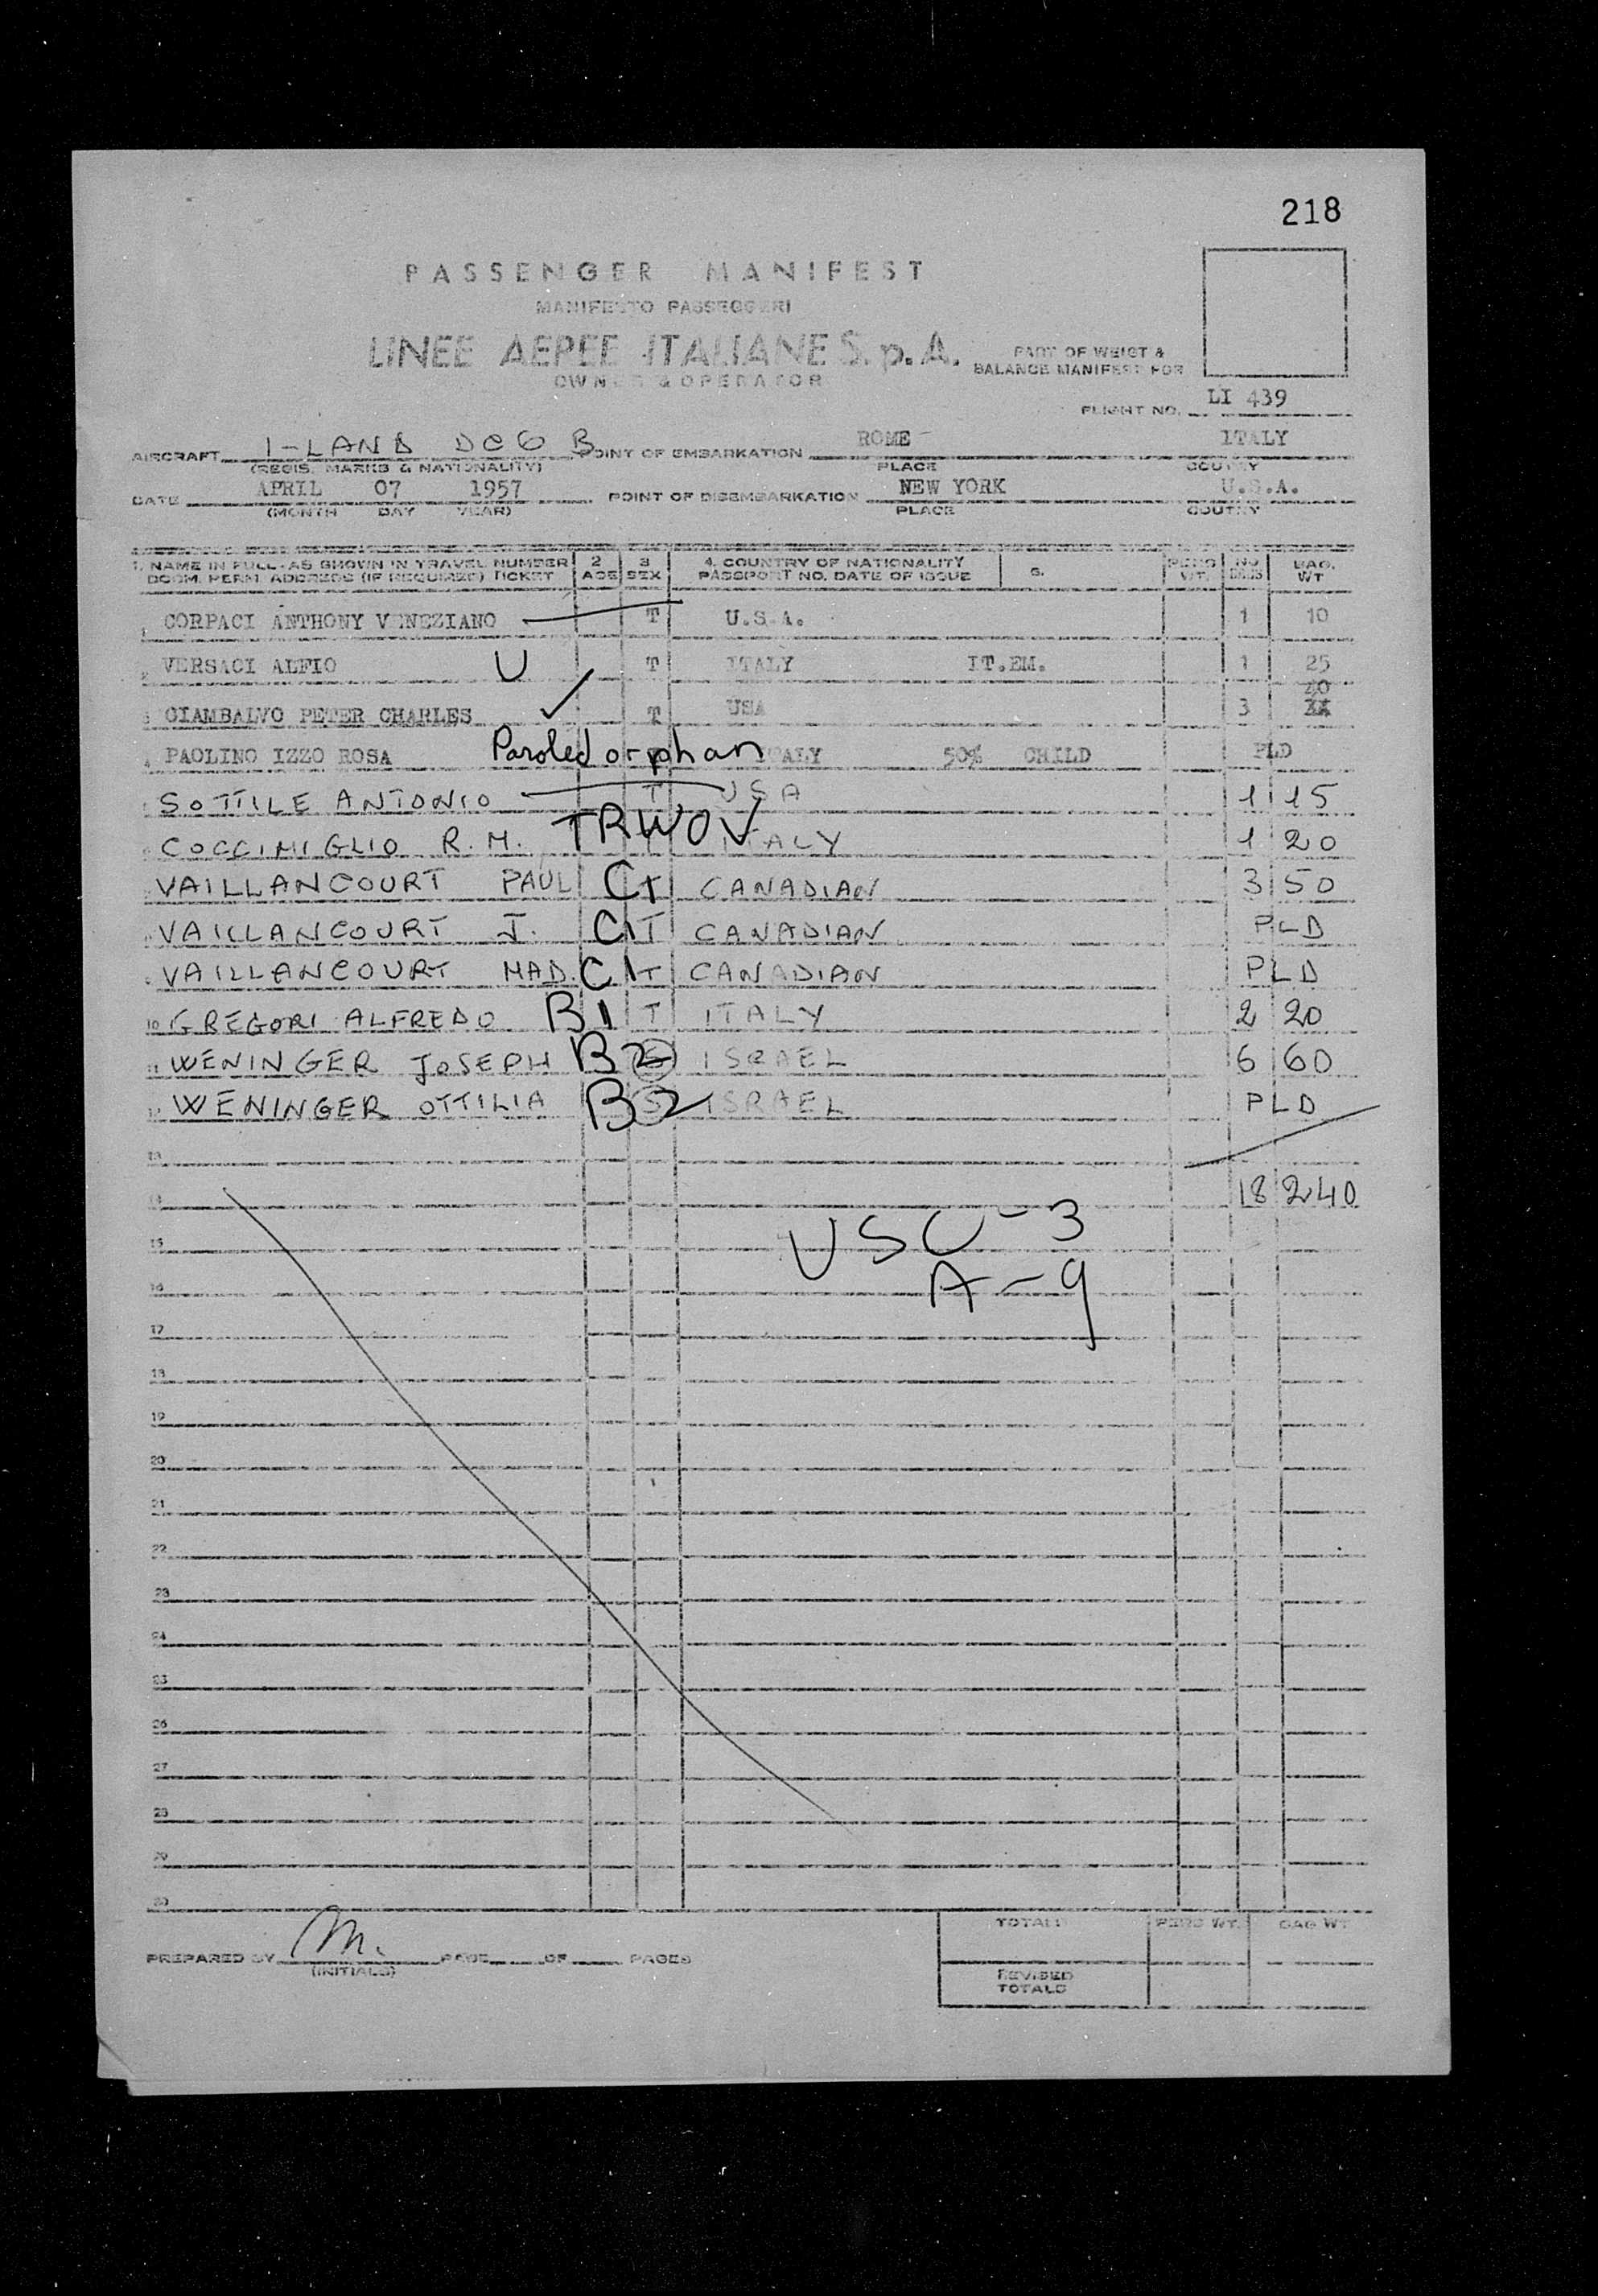 218
PASSENGER MANIFEST
MANIFESTO PASSEGGERI
LINEE AEREE ITALIANE S.p.A.
OWNER & OPERATOR
PART OF WEIGT &
BALANCE MANIFEST FOR
FLIGHT NO. LI 439
AIRCRAFT I-LAND DC6 B POINT OF EMBARKATION ROME ITALY
(REGIS. MARKS & NATIONALITY) PLACE COUTRY
DATE APRIL 07 1957 POINT OF DISEMBARKATION NEW YORK U.S.A.
(MONTH DAY YEAR) PLACE COUTRY
1. NAME IN FULL-AS SHOWN IN TRAVEL NUMBER 2 3 4. COUNTRY OF NATIONALITY PERS NO BAG.
DOCM. PERM. ADDRESS (IF REQUIRED) TICKET AGE SEX PASSPORT NO. DATE OF ISSUE WT. WT
1 CORPACI ANTHONY VENEZIANO T U.S.A. 1 10
2 VERSACI ALFIO U T ITALY IT.EM. 1 25
40
3 GIAMBALVO PETER CHARLES ✓ T USA 3
4 PAOLINO IZZO ROSA Paroled orphan ITALY 50% CHILD PLD
SOTTILE ANTONIO T USA 1 15
COCCIMIGLIO R.M. TRWOV ITALY 1 20
VAILLANCOURT PAUL C1 T CANADIAN 3 50
VAILLANCOURT J. C1 T CANADIAN PLD
VAILLANCOURT MAD. C1 T CANADIAN PLD
10 GREGORI ALFREDO B1 T ITALY 2 20
11 WENINGER JOSEPH B2 ISRAEL 6 60
12 WENINGER OTTILIA B2 S ISRAEL PLD
13
14 18 240
15 USC-3
16 A-9
17
18
19
20
21
22
23
24
25
26
27
28
29
30
TOTALS PERS WT. BAG WT
PREPARED BY M. PAGE OF PAGES
(INITIALS)
REVISED
TOTALS